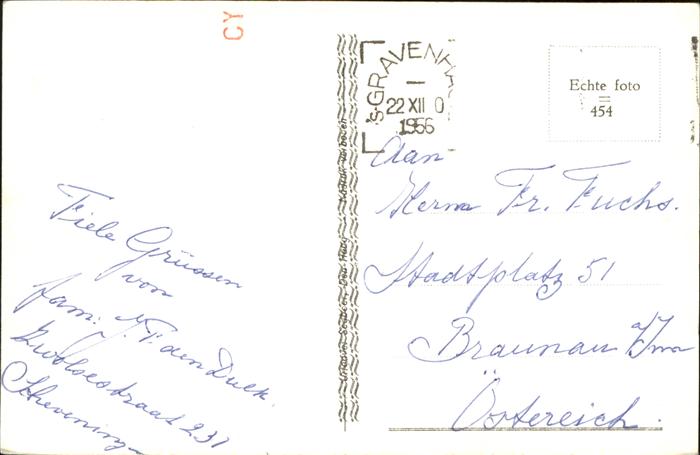 CY
's-GRAVENHA
22 XII 0
1956
Echte foto
454
Fiele Grüssen
von
fam: J. F. den Dulk.
231
Scheveningen
Aan
Herrn Fr. Fuchs.
Stadtplatz 51
Braunau I/Inn
Östereich.